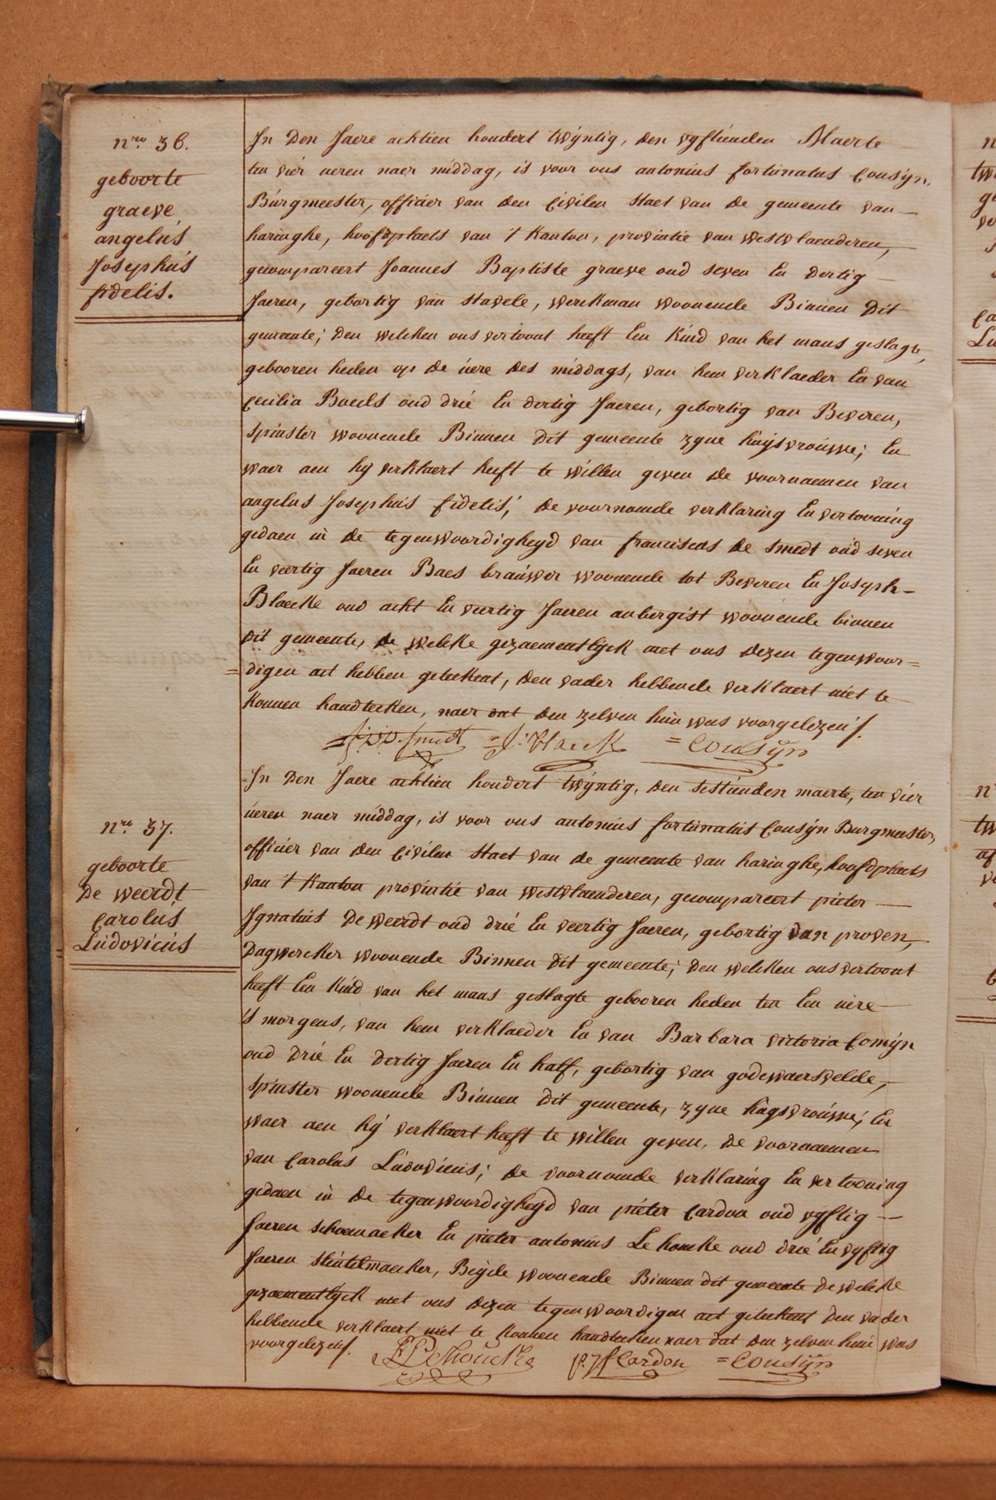 nro 36.
geboorte
graeve
angelus
Josephus
fidelis.
In Den Jaere achtien hondert twÿntig, den vyftienden Maerte
ten vier ueren naer middag, is voor ons antonius fortunatus Cousÿn,
Burgmeester, officier van den Civilen Staet van de gemeente van
haringhe, hoofdplaets van 't Kanton, provintie van westvlaenderen,
gecompareert Joannes Baptiste graeve oud seven En dertig
Jaeren, gebortig van stavele, werkman woonende Binnen dit
gemeente; den welcken ons vertoont heeft Een Kind van het mans geslagte,
gebooren heden op de uere des middags, van hem verklaeder En van
Cecilia Boeels oud drie En dertig Jaeren, gebortig van Beveren,
spinster woonende Binnen dit gemeente zyne huijsvrouwe; En
waer aen hy verklaert heeft te willen geven de voornaemen van
angelus Josephus fidelis; de voornoemde verklaring En vertooning
gedaen in de tegenwoordigheyd van franciscus de smedt oud seven
En veertig Jaeren Baes brauwer woonende tot Beveren En Joseph
Blaecke oud acht En veertig Jaeren aubergist woonende binnen
dit gemeente, de welcke gezaementlyck met ons dezen tegenwoor=
=digen act hebben geteekent, den vader hebbende verklaert niet te
konnen handteeken, naer dat den zelven hun was voorgelezen ./.
=Cousÿn
nro 37.
geboorte
De weerdt
Carolus
Ludovicus
In Den Jaere achtien hondert twÿntig, den sestienden maerte, ten vier
ueren naer middag, is voor ons antonius fortunatus Cousÿn Burgmeester,
officier van den Civilen Staet van de gemeente van haringhe, hoofdplaets
van 't Kanton provintie van westvlaenderen, gecompareert pieter
Ignatius De weerdt oud drie En veertig Jaeren, gebortig van proven,
Dagwercker woonende Binnen dit gemeente; den welcken ons vertoont
heeft Een Kind van het mans geslagte gebooren heden ten Een uere
's morgens, van hem verklaeder En van Barbara victoria Comÿn
oud drie En dertig Jaeren En half, gebortig van godewaersvelde,
spinster woonende Binnen dit gemeente, zyne huysvrouwe; En
waer aen hÿ verklaert heeft te willen geven, de voornaemen
van Carolus Ludovicus; de voornoemde verklaring En vertooning
gedaen in de tegenwoordigheyd van pieter Cardon oud vyftig
Jaeren schoemaeker En pieter antonius Lehoucke oud drie En vyftig
Jaeren stuelmaeker, Beyde woonende Binnen dit gemeente de welcke
gezaementlyck met ons dezen tegenwoordigen act geteekent den vader
hebbende verklaert niet te konnen handteeken naer dat den zelven hem was
voorgelezen ./.
PLehoucke
p. Jf Cardon
=Cousÿn